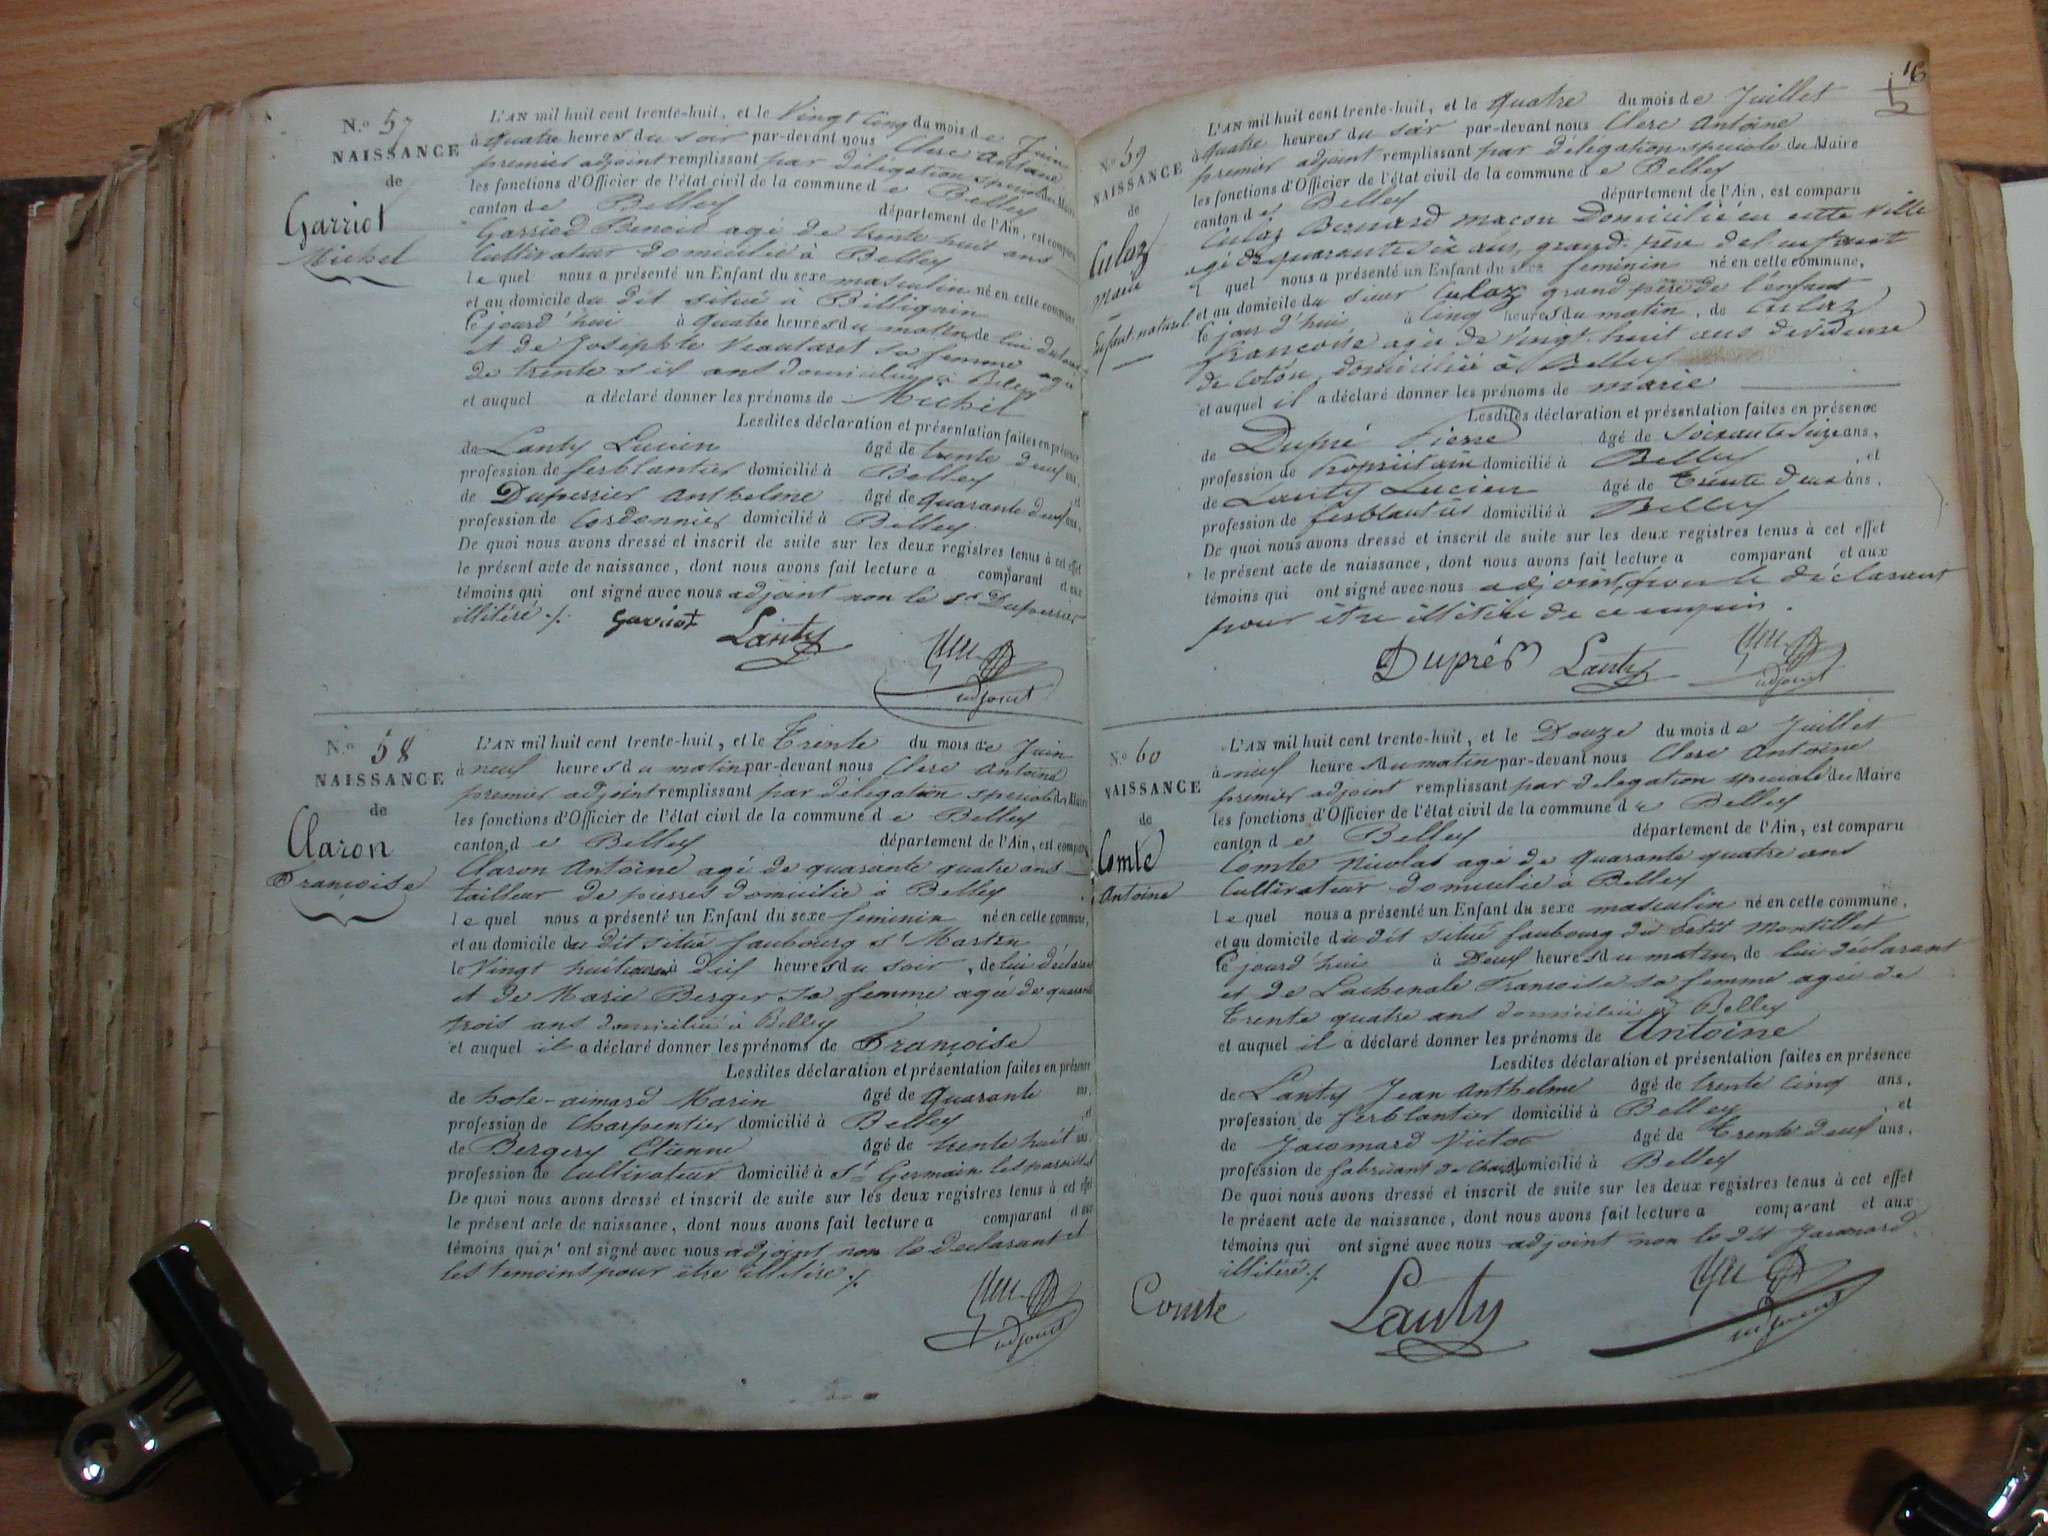 N.o 57
NAISSANCE
de
Garriot
Michel
L'AN mil huit cent trente-huit, et le Vingt Cinq du mois de Juin
à Quatre heures du soir par-devant nous Clerc Antoine
premier adjoint remplissant par délégation speciale du Maire
les fonctions d'Officier de l'état civil de la commune de Belley
canton de Belley département de l'Ain, est comparu
Benoit agé de trente huit ans
Cultivateur domicilié à Belley
lequel nous a présenté un Enfant du sexe masculin né en cette commune
et au domicile du dit situé à Billignin
Cejourd'hui à Quatre heures du matin de lui déclarant
et de Josephte sa femme agée
de trente six ans domiciliée à Belley
et auquel a déclaré donner les prénoms de Michel
Lesdites déclaration et présentation faites en présence
de Lanty Lucien âgé de trente deux ans,
profession de ferblantier domicilié à Belley et
de Duperrier Anthelme âgé de Quarante deux ans,
profession de Cordonnier domicilié à Belley.
De quoi nous avons dressé et inscrit de suite sur les deux registres tenus à cet effet
le présent acte de naissance, dont nous avons fait lecture a comparant et aux
témoins qui ont signé avec nous adjoint non le sr Duperrier
illitéré ./.
Garriot Lanty
adjoint
N.o 58
NAISSANCE
de
Claron
Françoise
L'AN mil huit cent trente-huit, et le Trente du mois de Juin
à neuf heures du matin par-devant nous Clerc Antoine
premier adjoint remplissant par délégation speciale du Maire
les fonctions d'Officier de l'état civil de la commune de Belley
canton de Belley département de l'Ain, est comparu
Claron Antoine agé de quarante quatre ans
tailleur de pierres domicilié à Belley
lequel nous a présenté un Enfant du sexe feminin né en cette commune,
et au domicile du dit situé faubourg St Martin
le Vingt huit à dix heures du soir, de lui déclarant
et de Marie Berger sa femme agée de quarante
trois ans domiciliée à Belley
et auquel il a déclaré donner les prénoms de Françoise
Lesdites déclaration et présentation faites en présence
de hote-aimard Marin âgé de Quarante ans,
profession de Charpentier domicilié à Belley et
de Bergery Etienne âgé de trente huit ans
profession de Cultivateur domicilié à St Germain les paroisses
De quoi nous avons dressé et inscrit de suite sur les deux registres tenus à cet effet
le présent acte de naissance, dont nous avons fait lecture a comparant et aux
témoins qui n'ont signé avec nous adjoint non le declarant et
les temoins pour être illitéré ./.
adjoint
16
N.o 59
NAISSANCE
de
Culaz
Marie
Enfant naturel
L'AN mil huit cent trente-huit, et le Quatre du mois de Juillet
à Quatre heures du soir par-devant nous Clerc Antoine
premier adjoint remplissant par délégation speciale du Maire
les fonctions d'Officier de l'état civil de la commune de Belley
canton de Belley département de l'Ain, est comparu
Culaz Bernard maçon Domicilié en cette Ville
agé de quarante six ans, grand père de l'enfant
l quel nous a présenté un Enfant du sexe feminin né en cette commune,
et au domicile du sieur Culaz grand père de l'enfant
Cejourd'hui à Cinq heures du matin, de Culaz
françoise agée de Vingt huit ans devideuse
de coton, domiciliée à Belley
et auquel il a déclaré donner les prénoms de marie
Lesdites déclaration et présentation faites en présence
de Dupré Pierre âgé de Soixante Seize ans,
profession de Propriétaire domicilié à Belley, et
de Lanty Lucien âgé de Trente deux ans,
profession de ferblantier domicilié à Belley
De quoi nous avons dressé et inscrit de suite sur les deux registres tenus à cet effet
le présent acte de naissance, dont nous avons fait lecture a comparant et aux
témoins qui ont signé avec nous adjoint, le déclarant
pour être illitéré de ce requis.
Dupré Lanty
adjoint
N.o 60
NAISSANCE
de
Comte
Antoine
L'AN mil huit cent trente-huit, et le Douze du mois de Juillet
à neuf heures du matin par-devant nous Clerc Antoine
premier adjoint remplissant par delegation speciale du Maire
les fonctions d'Officier de l'état civil de la commune de Belley
canton de Belley département de l'Ain, est comparu
Comte Nicolas agé de Quarante quatre ans
Cultivateur domicilié à Belley
lequel nous a présenté un Enfant du sexe masculin né en cette commune,
et au domicile du dit situé faubourg du Petit Montillet
Cejourd'hui à Deux heures du matin, de lui déclarant
et de Lachenale Françoise sa femme agée de
Trente quatre ans domiciliée à Belley
et auquel il a déclaré donner les prénoms de Antoine
Lesdites déclaration et présentation faites en présence
de Lanty Jean Anthelme âgé de trente Cinq ans,
profession de ferblantier domicilié à Belley, et
de Jacomard Victor âgé de Trente deux ans,
profession de fabricant de domicilié à Belley
De quoi nous avons dressé et inscrit de suite sur les deux registres tenus à cet effet
le présent acte de naissance, dont nous avons fait lecture a comparant et aux
témoins qui ont signé avec nous adjoint non le dit Jacomard
illitéré ./.
Comte Lanty
adjoint